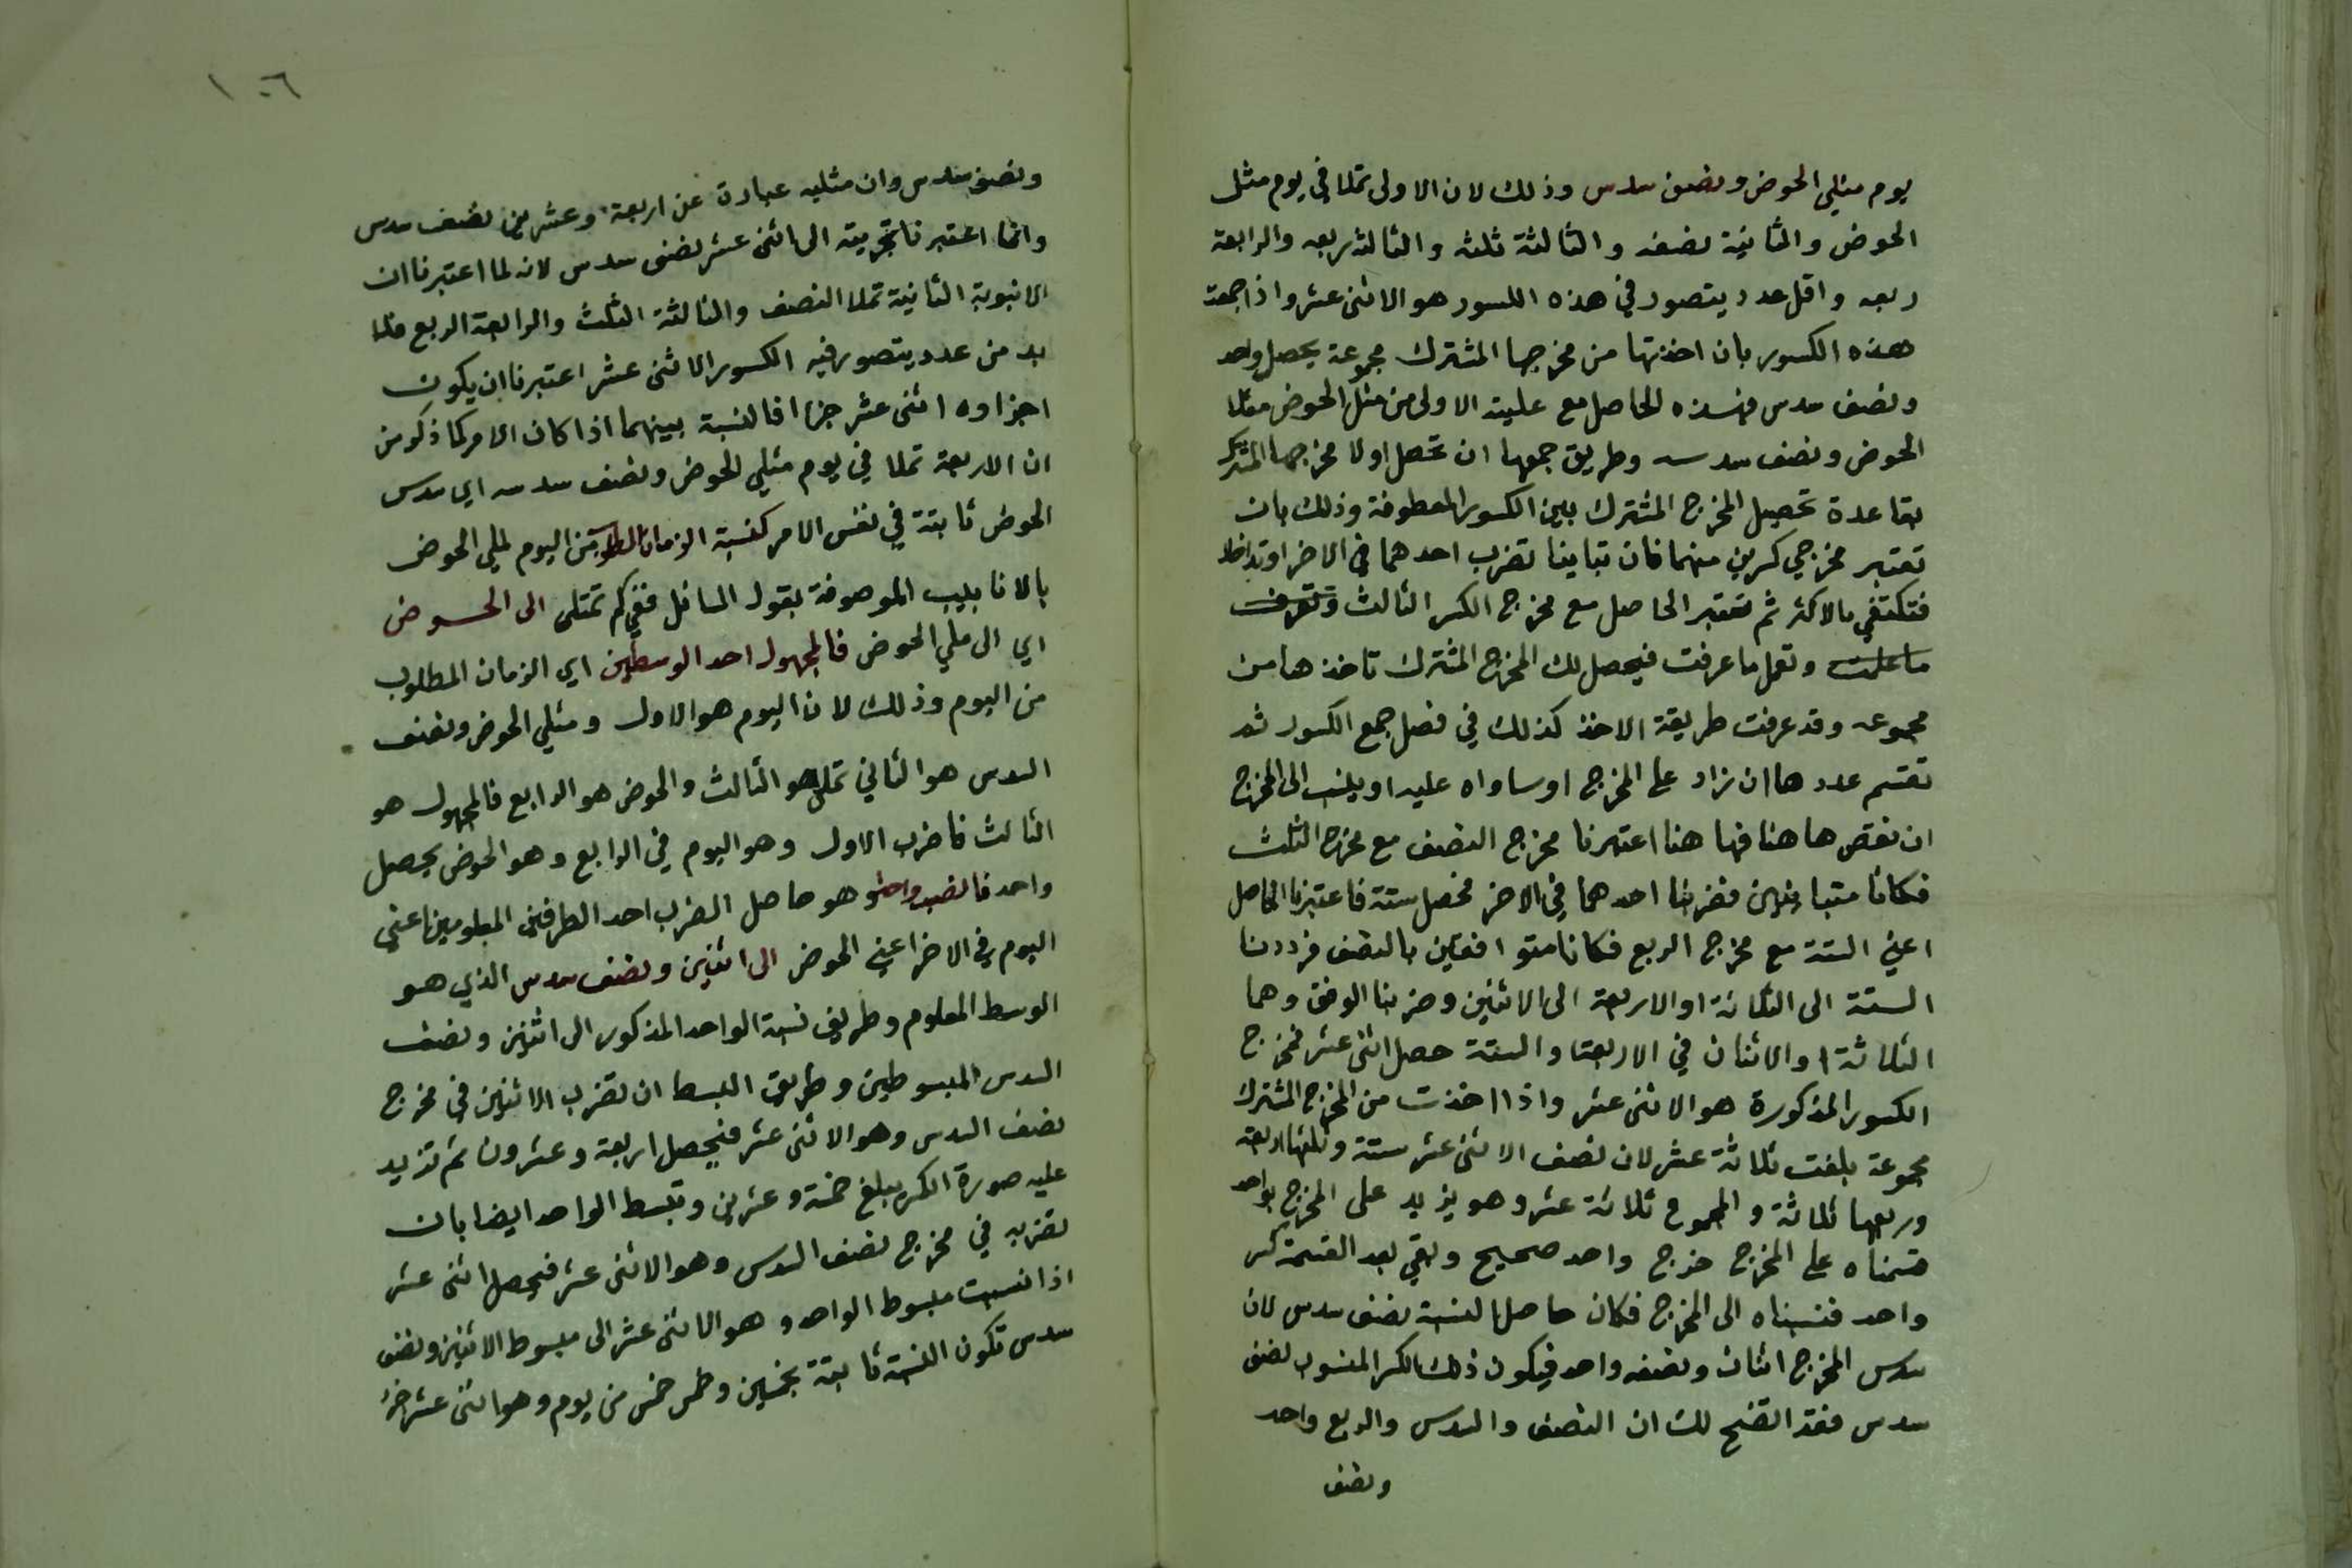 يوم مثلي الحوض ونصف سدس وذلك لان الاولى تملا في يوم مثل
الحوض والثانية نصفه والثالثة ثلثه والثالثة ربعه والرابعة
ربعه واقل عدد يتصور في هذه الكسور هو الاثنى عشر واذا جمعت
هذه الكسور بان اخذتها من مخرجها المشترك مجموعة يحصل واحد
ونصف سدس فهذه الحاصل مع عليته الاولى من مثل الحوض مثلا
الحوض ونصف سدسه وطريق جمعها ان تحصل اولا مخرجها المشترك
بقاعدة تحصيل المخرج المشترك بين الكسور المعطوفة وذلك بان
تعتبر مخرجي كسرين منهما فان تباينا تضرب احدهما في الاخر او تداخلا
فتكتفي بالاكثر ثم تعتبر الحاصل مع مخرج الكسر الثالث وتعرف
ما علمت وتعمل ما عرفت فيحصل لك المخرج المشترك تاخذها من
مجموعه وقد عرفت طريقة الاخذ كذلك في فصل جمع الكسور ثم
تقسم عددها ان زاد على المخرج او ساواه عليه او ينسب الى المخرج
ان نقص ها هنا فها هنا اعتبرنا مخرج النصف مع مخرج الثلث
فكانا متباينين فضربنا احدهما في الاخر فحصل ستة فاعتبرنا الحاصل
اعني الستة مع مخرج الربع فكانا متوافقين بالنصف فرددنا
الستة الى الثلاثة او الاربعة الى الاثنين وضربنا الوفق وهما
الثلاثة او الاثنان في الاربعة او الستة حصل اثنى عشر فمخرج
الكسور المذكورة هو الاثنى عشر واذا اخذت من المخرج المشترك
مجموعة بلغت ثلاثة عشر لان نصف الاثنى عشر ستة وثلثها اربعة
وربعها ثلاثة والمجموع ثلاثة عشر وهو يزيد على المخرج بواحد
قسمناه على المخرج خرج واحد صحيح وبقي بعد القسمة كسر
واحد فنسبناه الى المخرج فكان حاصل النسبة نصف سدس لان
سدس المخرج اثنان ونصفه واحد فيكون ذلك الكسر المنسوب نصف
سدس فقد اتضح لك ان النصف والسدس والربع واحد
ونصف
١٠٦
ونصف سدس وان مثليه عبارة عن اربعة وعشرين نصف سدس
وانما اعتبرنا تجزيته الى اثنى عشر نصف سدس لانه لما اعتبرنا ان
الانبوبة الثانية تملا النصف والثالثة الثلث والرابعة الربع فلا
بد من عدد يتصور فيه الكسور الاثنى عشر اعتبرنا ان يكون
اجزاوه اثنى عشر جزا فالنسبة بينهما اذا كان الامر كما ذكر من
ان الاربعة تملا في يوم مثلي الحوض ونصف سدسه اي سدس
الحوض ثابتة في نفس الامر كنسبة الزمان المطلوب من اليوم لملي الحوض
بالانابيب الموصوفة بقول السائل ففي كم تمتلى الى الحوض
اي الى ملي الحوض فالمجهول احد الوسطين اي الزمان المطلوب
من اليوم وذلك لان اليوم هو الاول ومثلي الحوض ونصف
السدس هو الثاني تملى هو الثالث والحوض هو الرابع فالمجهول هو
الثالث فاضرب الاول وهو اليوم في الرابع وهو الحوض يحصل
واحد فانسب واحدا هو حاصل الضرب احد الطرفين المعلومين اعني
اليوم في الاخر اعني الحوض الى اثنين ونصف سدس الذي هو
الوسط المعلوم وطريق نسبة الواحد المذكور الى اثنين ونصف
السدس المبسوطين وطريق البسط ان تضرب الاثنين في مخرج
نصف السدس وهو الاثنى عشر فيحصل اربعة وعشرون ثم تزيد
عليه صورة الكسر يبلغ خمسة وعشرين وتبسط الواحد ايضا بان
تضربه في مخرج نصف السدس وهو الاثنى عشر فيحصل اثنى عشر
اذا نسبت مبسوط الواحد وهو الاثنى عشر الى مبسوط الاثنين ونصف
سدس تكون النسبة ثابتة بخمسين وخمس خمس من يوم وهو اثنى عشر جزء